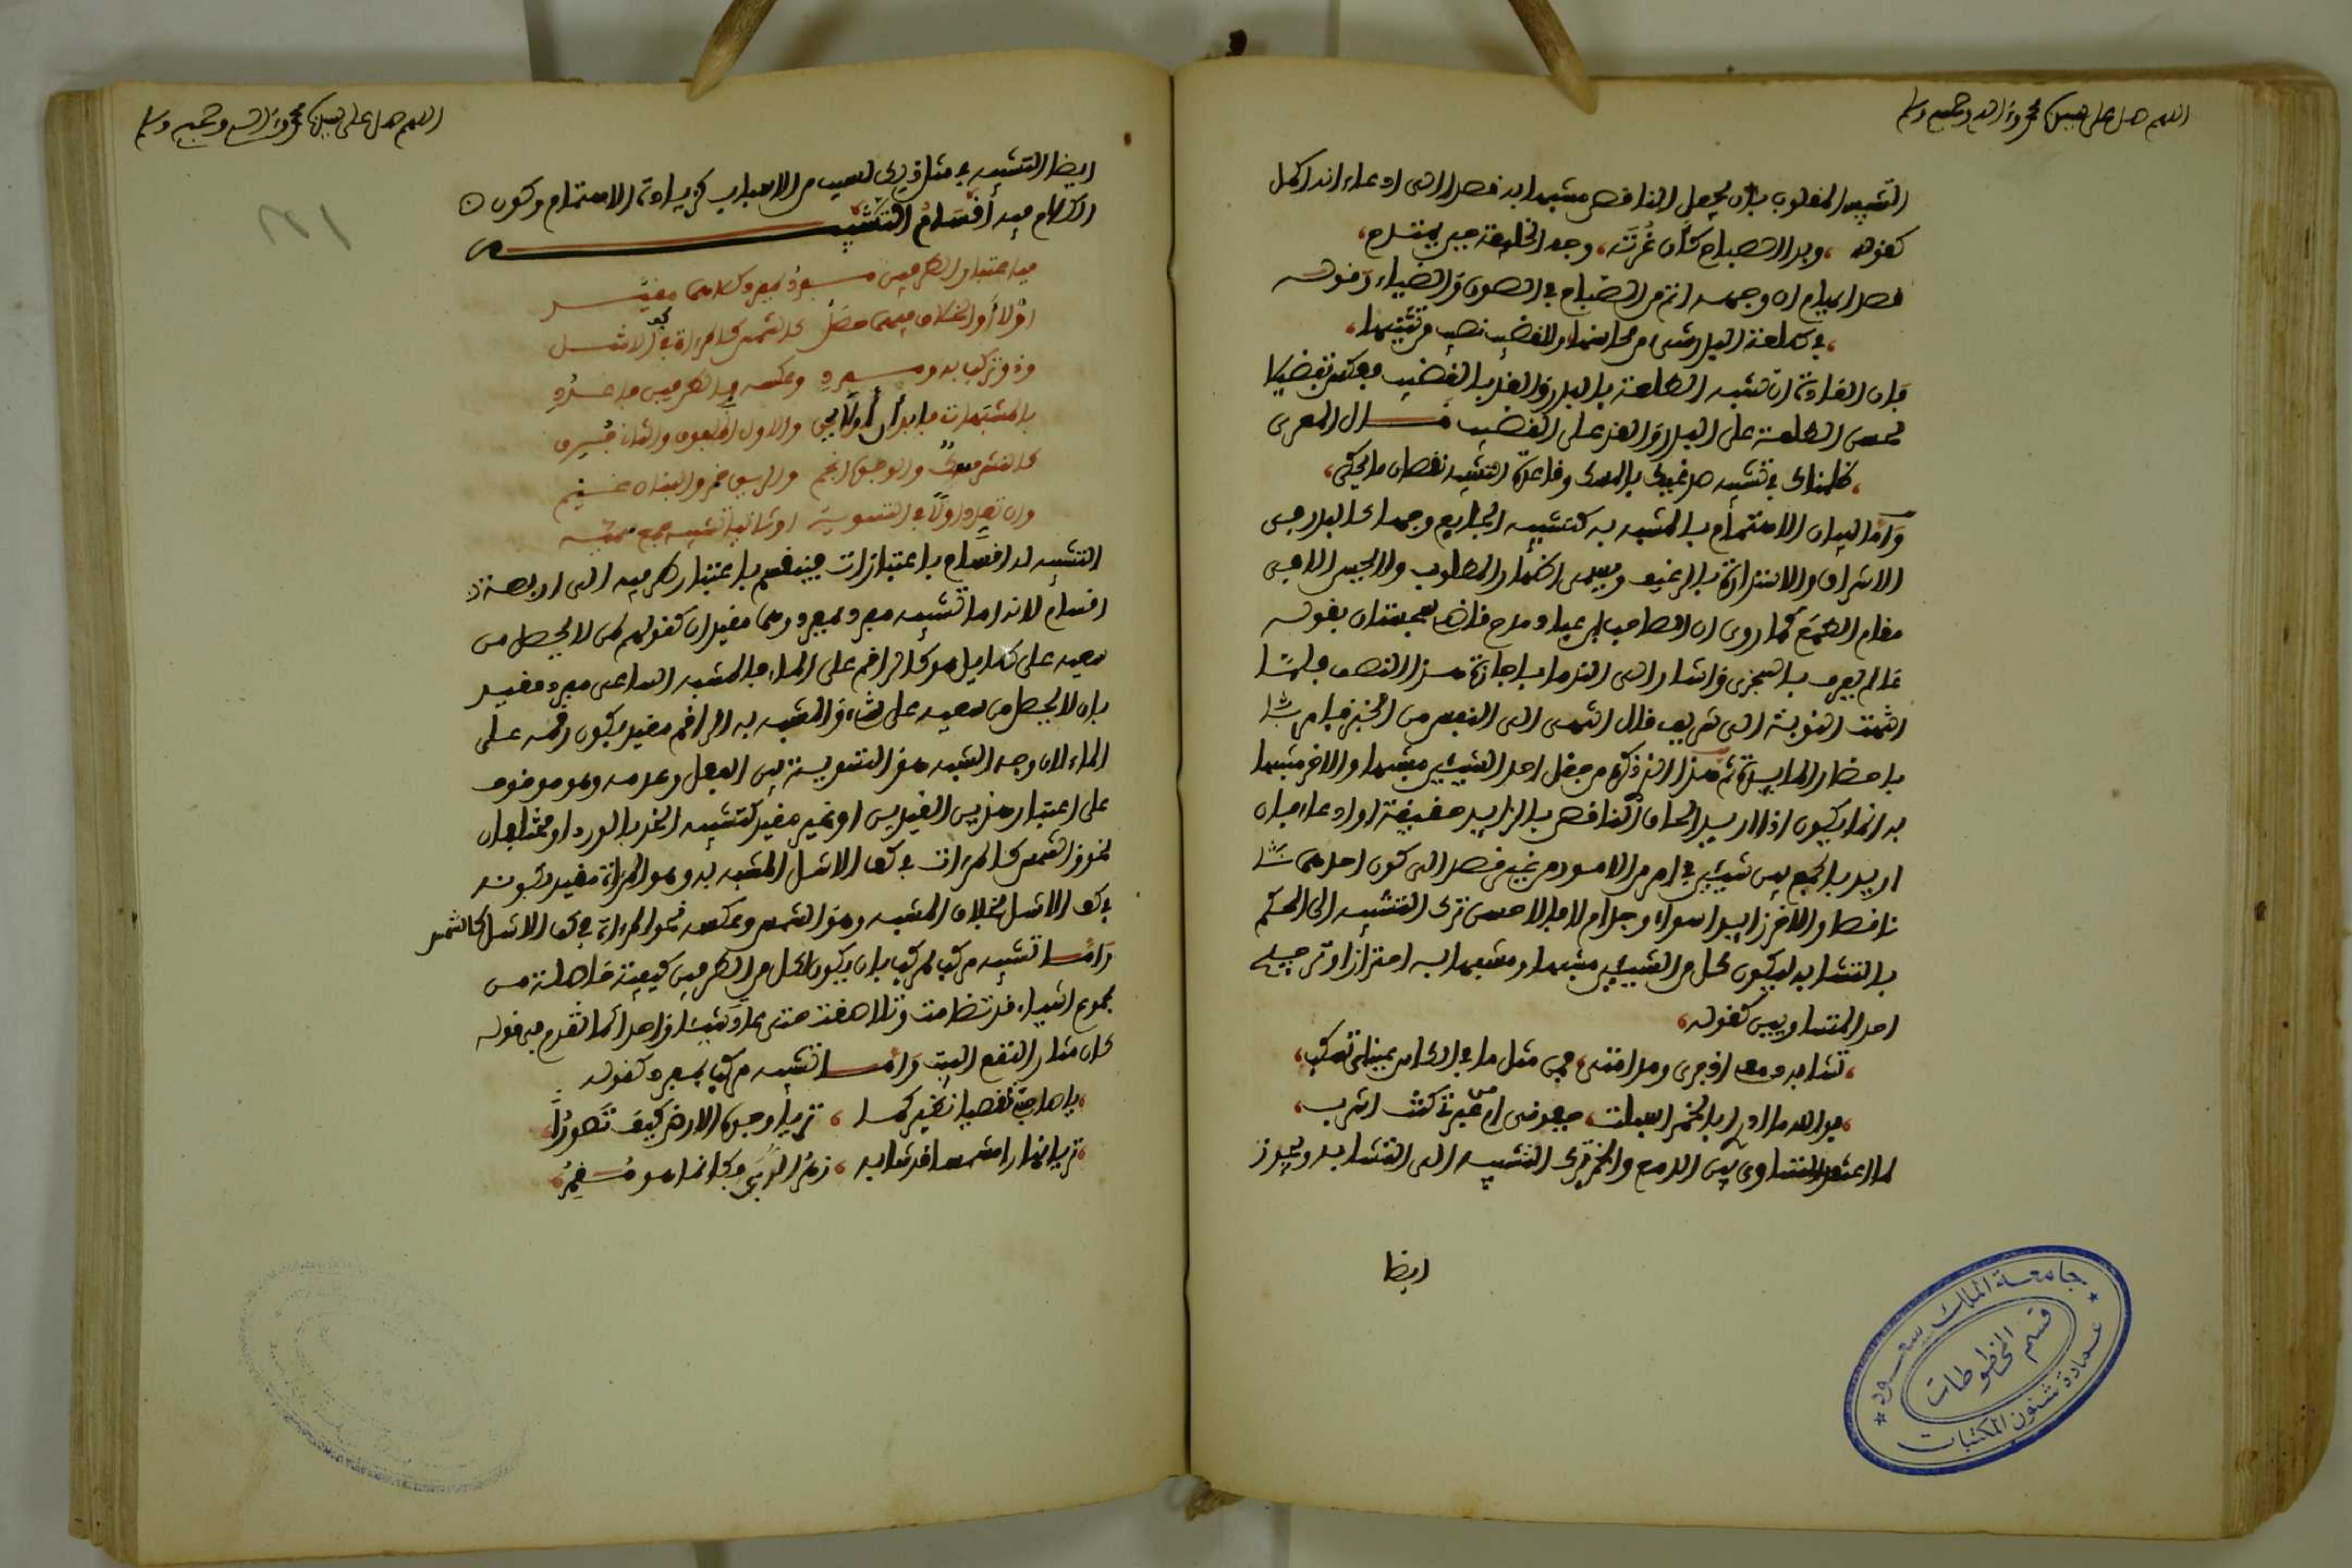 اللهم صل على سيدنا محمد وءاله وصحبه وسلم
التشبيه المقلوب بان يجعل الناقص مشبها به قصدا الى ادعاء انه اكمل
كقوله وبدا الصباح كأن غُرَّتَه وجه الخليفة حين يمتدح
قصد ايهام ان وجهه اتم من الصباح في الضوء والضياء وقوله
في طلعة البدر شيء من محاسنها وللقضيب نصيب من تثنيها
فان العادة ان تشبه الطلعة بالبدر والقد بالقضيب فعكس تفضيلا
لحسن الطلعة على البدر والقد على القضيب قال المعري
ظلمناك في تشبيه صدغيك بالمسك وقاعدة التشبيه نقصان ما يحكى
وأما لبيان الاهتمام بالمشبه به كتشبيه الجايع وجها كالبدر في
الاشراق والاستدارة بالرغيف ويسمى اظهار المطلوب ولا يحسن الا في
مقام الطمع كما روي ان الصاحب بن عباد مدح قاضي سجستان بقوله
عالم يعرف بالسجزي واشار الى الندما باجازة هذا النصف فلما
انتهت النوبة الى شريف قال اشهى الى النفس من الخبز فامر
باحضار المايدة ثم هذا الذي ذكر من جعل احد الشيئين مشبها والاخر مشبها
به انما يكون اذا اريد الحاق الناقص بالزايد حقيقة او ادعاء فان
اريد الجمع بين شيئين في امر من الامور من غير قصد الى كون احدهما
ناقصا والاخر زايدا سواء وجد ام لا فالاحسن ترك التشبيه الى الحكم
بالتشابه ليكون كل من الشيئين مشبها ومشبها به احترازا من ترجيح
احد المتساويين كقوله
تشابه دمعي اذ جرى ومدامتي فمن مثل ما في الكاس عيني تسكب
فوالله ما ادري ابالخمر اسبلت جفوني ام من عبرتي كنت اشرب
لما اعتقد التساوي بين الدمع والخمر ترك التشبيه الى التشابه ويجوز
ايضا
جامعة الملك سعود
قسم المخطوطات
عمادة شئون المكتبات
اللهم صل على سيدنا محمد وءاله وصحبه وسلم
ايضا التشبيه في مثل ذلك لسبب من الاسباب كزيادة الاهتمام وكون
الكلام فيه أقسام التشبيه
فيه اعتبار الطرفين مفرد بمفرد كلاهما مقيد
اولا أو الخلاف فيهما حصل كالشمس كالمرءاة في كف الاشل
وذو تركب به ومفرد وعكسه فالطرفين عدد
والاول الملفوف والثان
كالنشر مسك والوجوه انجم والريق خمر والبنان عنم
وان تعدد اولا في التسوية او ثانيا تشبيه جمع
التشبيه له اقسام باعتبارات فينقسم باعتبار طرفيه الى اربعة
اقسام لانه اما تشبيه مفرد بمفرد وهما مقيدان كقولهم لمن لا يحصل من
سعيه على طايل هو كالراقم على الماء فالمشبه الساعي مفرد مقيد
بان لا يحصل من سعيه على شيء والمشبه به الراقم مقيد بكون رقمه على
الماء لان وجه الشبه هو التسوية بين الفعل وعدمه وهو موقوف
على اعتبار هذين القيدين او غير مقيد كتشبيه الخد بالورد او مختلفان
نحو والشمس كالمرءاة في كف الاشل المشبه به وهو المرءاة مقيد بكونه
في كف الاشل بخلاف المشبه وهو الشمس وعكسه نحو المرءاة في كف الاشل كالشمس
وأما تشبيه مركب بمركب بان يكون كل من الطرفين كيفية حاصلة من
مجموع اشياء قد تضامت وتلاصقت حتى عادت شيئا واحدا كما تقدم في قوله
كان مثار النقع البيت وأما تشبيه مركب بمفرد كقوله
يا صاحبي تقصيا نظريكما تريا وجوه الارض كيف تصور
تريا نهارا مشمسا قد شابه زهر الربى فكانما هو مقمر